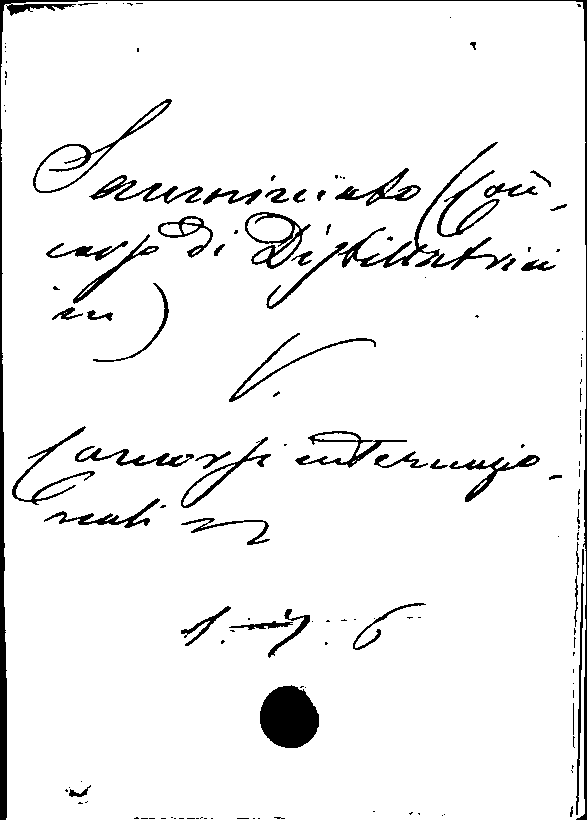 Sanminiato (Con-
corso di Distillatrici
in)
V.
Concorsi internazio-
nali
1. 7. 6